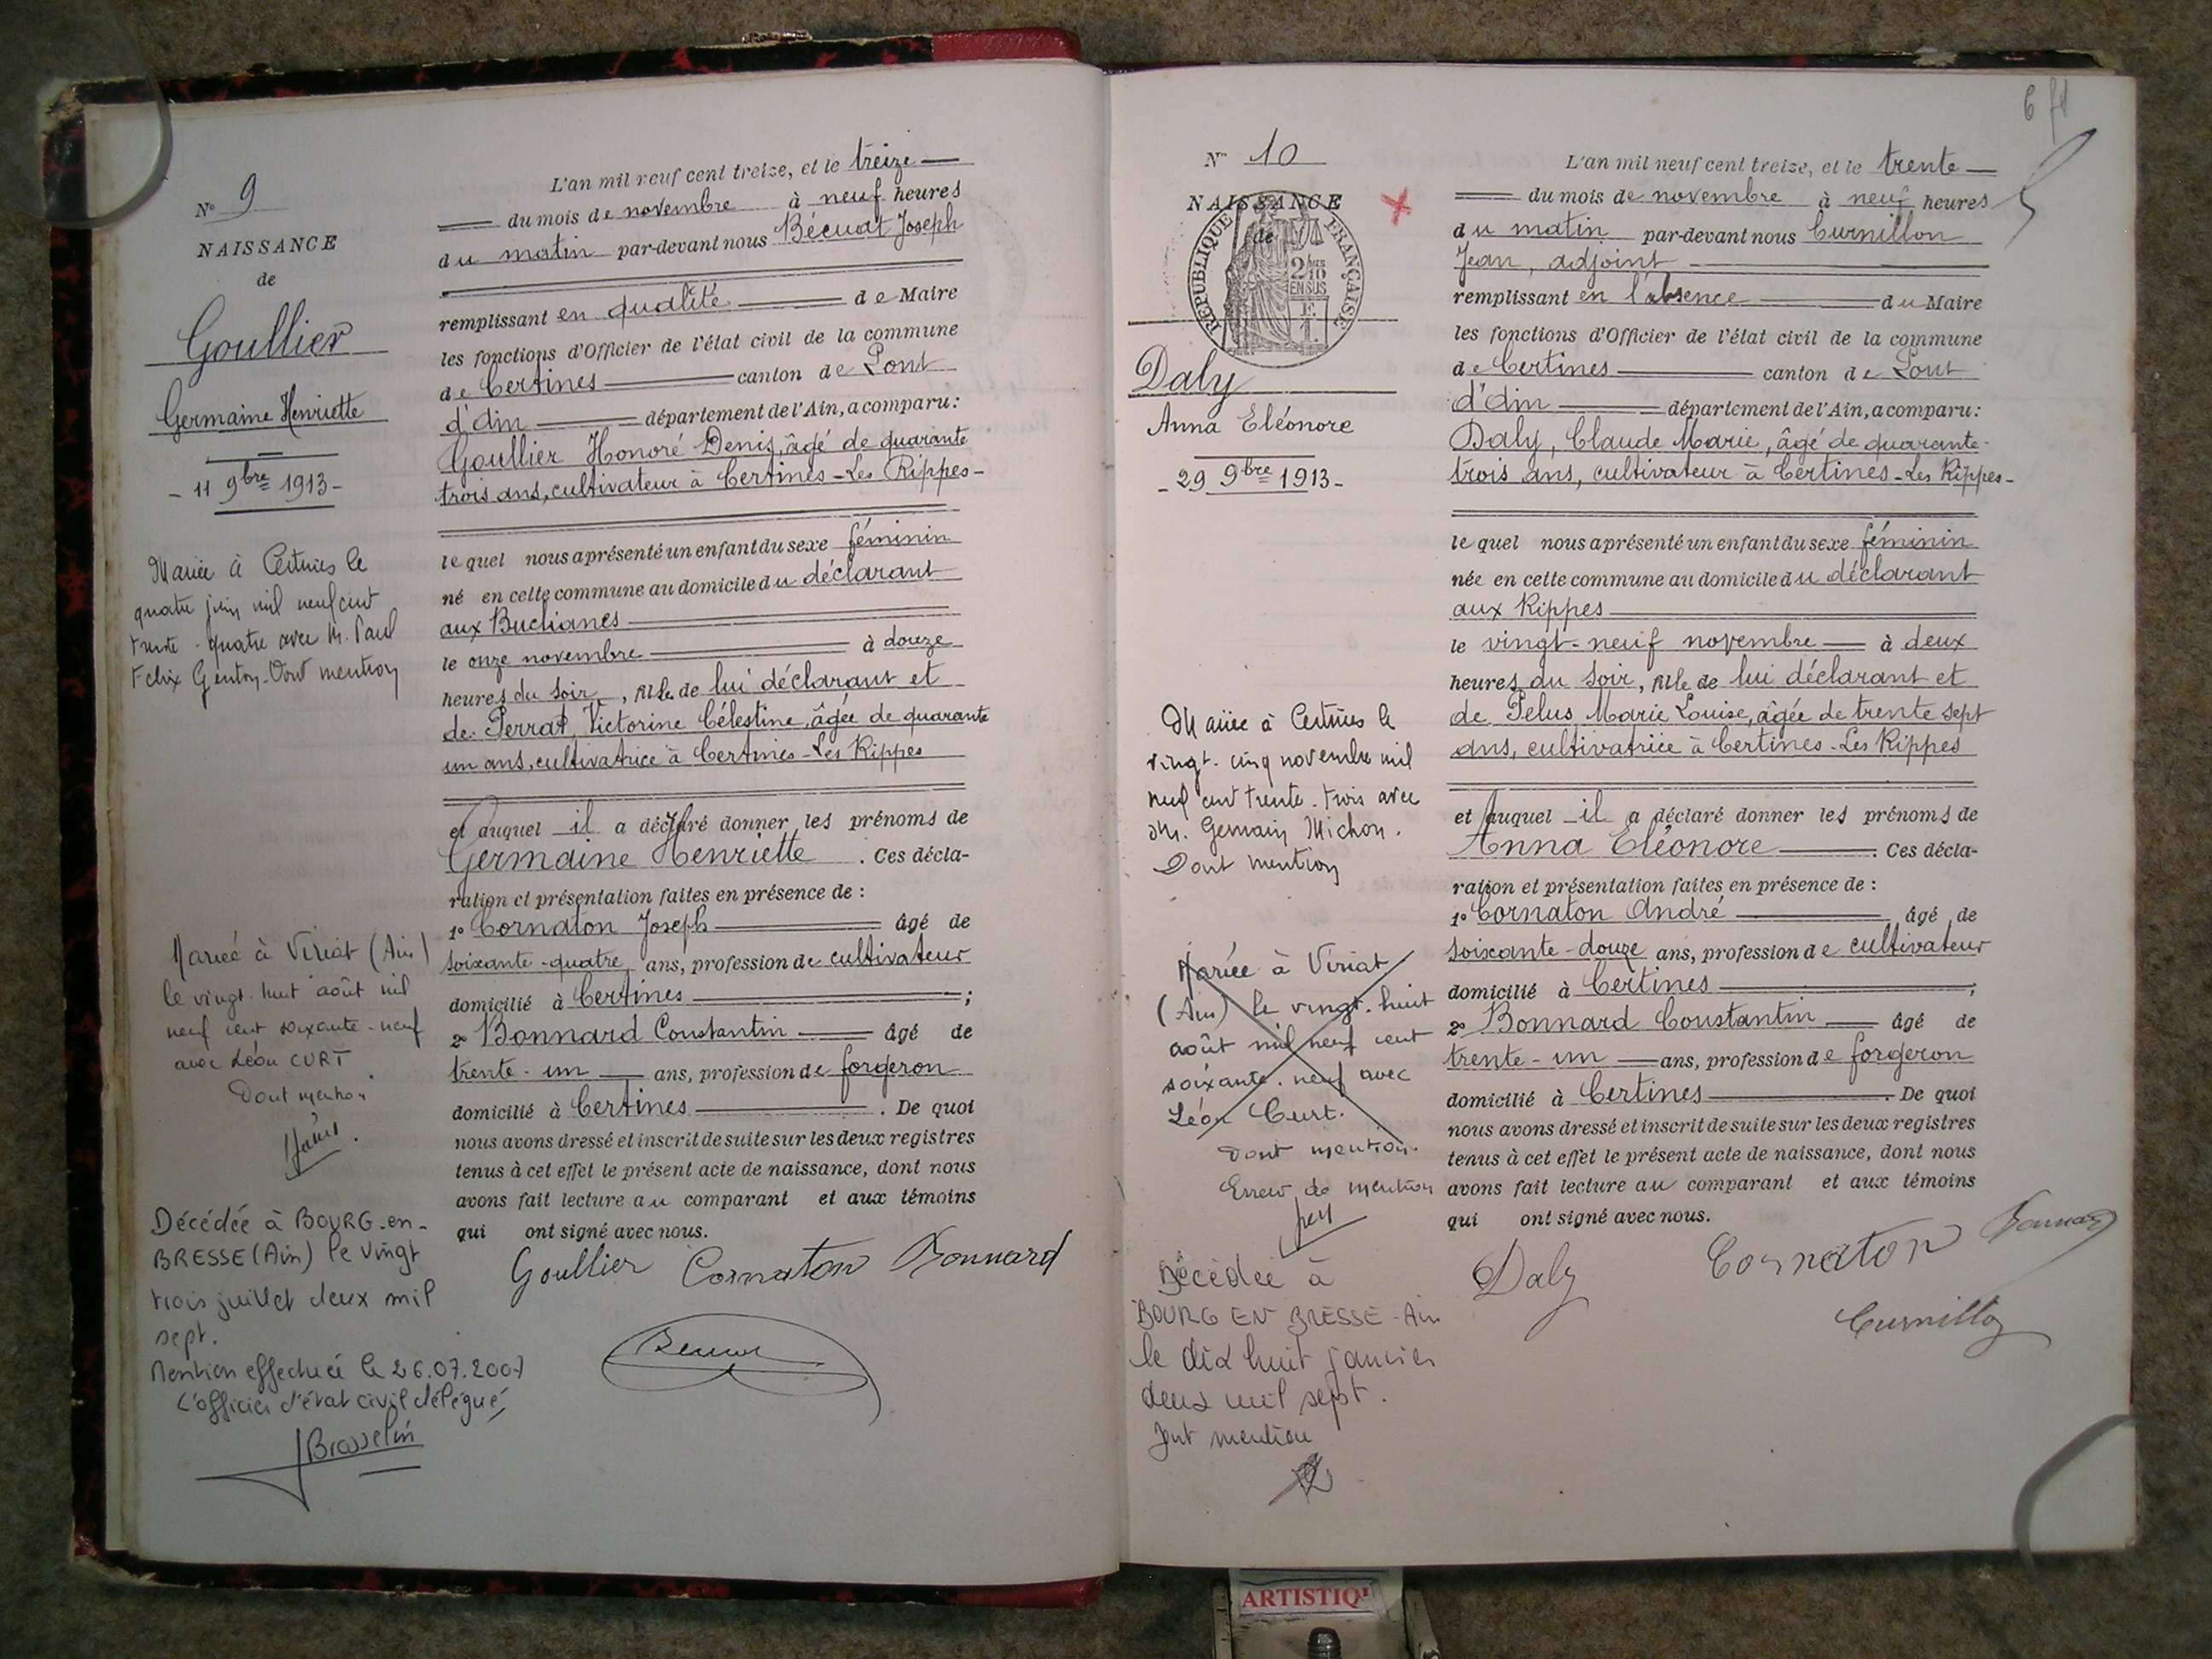 N° 9
NAISSANCE
de
Goullier
Germaine Henriette
- 11 9bre 1913 -
Mariée à Certines le
quatre juin mil neuf cent
trente-quatre avec M. Paul
Felix Genton. Dont mention
Mariée à Viriat (Ain)
le vingt-huit août mil
neuf cent soixante-neuf
avec Léon CURT
Dont mention.
Décédée à BOURG-en-
BRESSE (Ain) le vingt
trois juillet deux mil
sept.
Mention effectuée le 26.07.2007
L'officier d'état civil délégué,
JBrasselin
L'an mil neuf cent treize, et le treize
du mois de novembre à neuf heures
du matin par-devant nous Bécuat Joseph
remplissant en qualité de Maire
les fonctions d'Officier de l'état civil de la commune
de Certines canton de Pont
d'Ain département de l'Ain, a comparu :
Goullier Honoré Denis, âgé de quarante
trois ans, cultivateur à Certines - Les Rippes -
lequel nous a présenté un enfant du sexe féminin
né en cette commune au domicile du déclarant
aux Buchanes
le onze novembre à douze
heures du soir, fille de lui déclarant et
de Perrat, Victorine Célestine, âgée de quarante
un ans, cultivatrice à Certines - Les Rippes
et auquel il a déclaré donner les prénoms de
Germaine Henriette. Ces décla-
ration et présentation faites en présence de :
1° Cornaton Joseph âgé de
soixante-quatre ans, profession de cultivateur
domicilié à Certines ;
2° Bonnard Constantin âgé de
trente-un ans, profession de forgeron
domicilié à Certines. De quoi
nous avons dressé et inscrit de suite sur les deux registres
tenus à cet effet le présent acte de naissance, dont nous
avons fait lecture au comparant et aux témoins
qui ont signé avec nous.
Goullier Cornaton Bonnard
6 f1
N° 10
NAISSANCE
de
RÉPUBLIQUE FRANÇAISE
2/10
EN SUS
Daly
Anna Eléonore
- 29 9bre 1913 -
Mariée à Certines le
vingt-cinq novembre mil
neuf cent trente-trois avec
M. Germain Michon.
Dont mention
Mariée à Viriat
(Ain) le vingt-huit
août mil neuf cent
soixante-neuf avec
Léon Curt.
Dont mention.
Erreur de mention
Décédée à
BOURG EN BRESSE - Ain
le dix huit janvier
deux mil sept.
Dont mention
L'an mil neuf cent treize, et le trente
du mois de novembre à neuf heures
du matin par-devant nous Curnillon
Jean, adjoint
remplissant en l'absence du Maire
les fonctions d'Officier de l'état civil de la commune
de Certines canton de Pont
d'Ain département de l'Ain, a comparu :
Daly, Claude Marie, âgé de quarante-
trois ans, cultivateur à Certines - Les Rippes -
lequel nous a présenté un enfant du sexe féminin
née en cette commune au domicile du déclarant
aux Rippes
le vingt-neuf novembre à deux
heures du soir, fille de lui déclarant et
de Pelus Marie Louise, âgée de trente sept
ans, cultivatrice à Certines - Les Rippes
et auquel il a déclaré donner les prénoms de
Anna Eléonore. Ces décla-
ration et présentation faites en présence de :
1° Cornaton André âgé de
soixante-douze ans, profession de cultivateur
domicilié à Certines ;
2° Bonnard Constantin âgé de
trente-un ans, profession de forgeron
domicilié à Certines. De quoi
nous avons dressé et inscrit de suite sur les deux registres
tenus à cet effet le présent acte de naissance, dont nous
avons fait lecture au comparant et aux témoins
qui ont signé avec nous.
Daly Cornaton Bonnard
Curnillon
ARTISTIQ